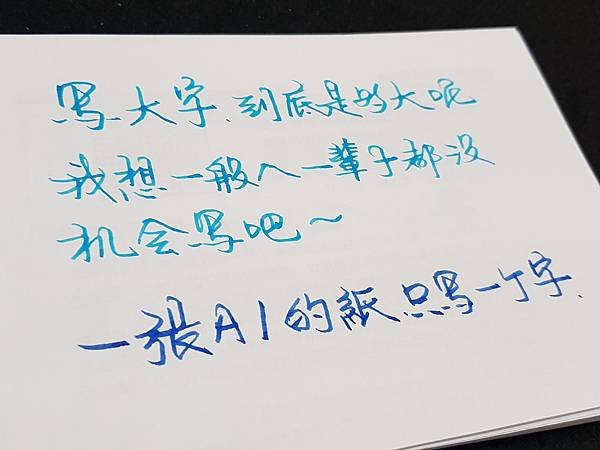 写大字、到底是多大呢
我想一般人一輩子都沒
机会写吧~
一張A1的紙只写一个字、